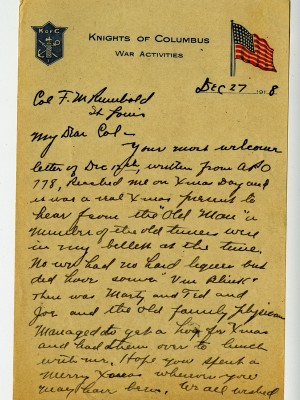 K of C
KNIGHTS OF COLUMBUS
WAR ACTIVITIES
Dec 27 1918
Col F. M Rumbold
St Louis
My Dear Col-
Your most welcome
letter of Dec written from APO
778, Reached me on Xmas Day and
it was a real Xmas present to
hear from the "Old Man" a
number of the old timers were
in my billett at the time.
No we had no hard liquor but
did have some "Vin Blink"
There was Marty and Ted and
Joe and the old family physician
Managed to get a Hog for Xmas
and had them over to lunch
with me. I hope you spent a
Merry Xmas wherever you
may have been. We all wished